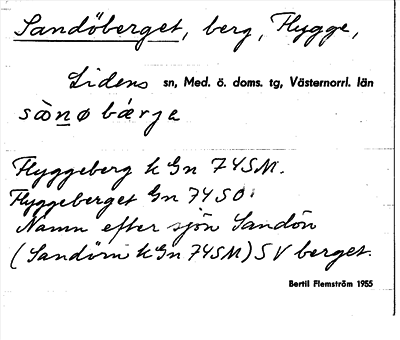 Sandöberget, berg, Flygge,
Lidens sn, Med. ö. doms. tg, Västernorrl. län
sànøbǽrjɛ
Flyggeberg k Gn 74SM.
Flyggeberget Gn 74SO.
Namn efter sjön Sandön
(Sandörn k Gn 74SM) SV berget.
Bertil Flemström 1955